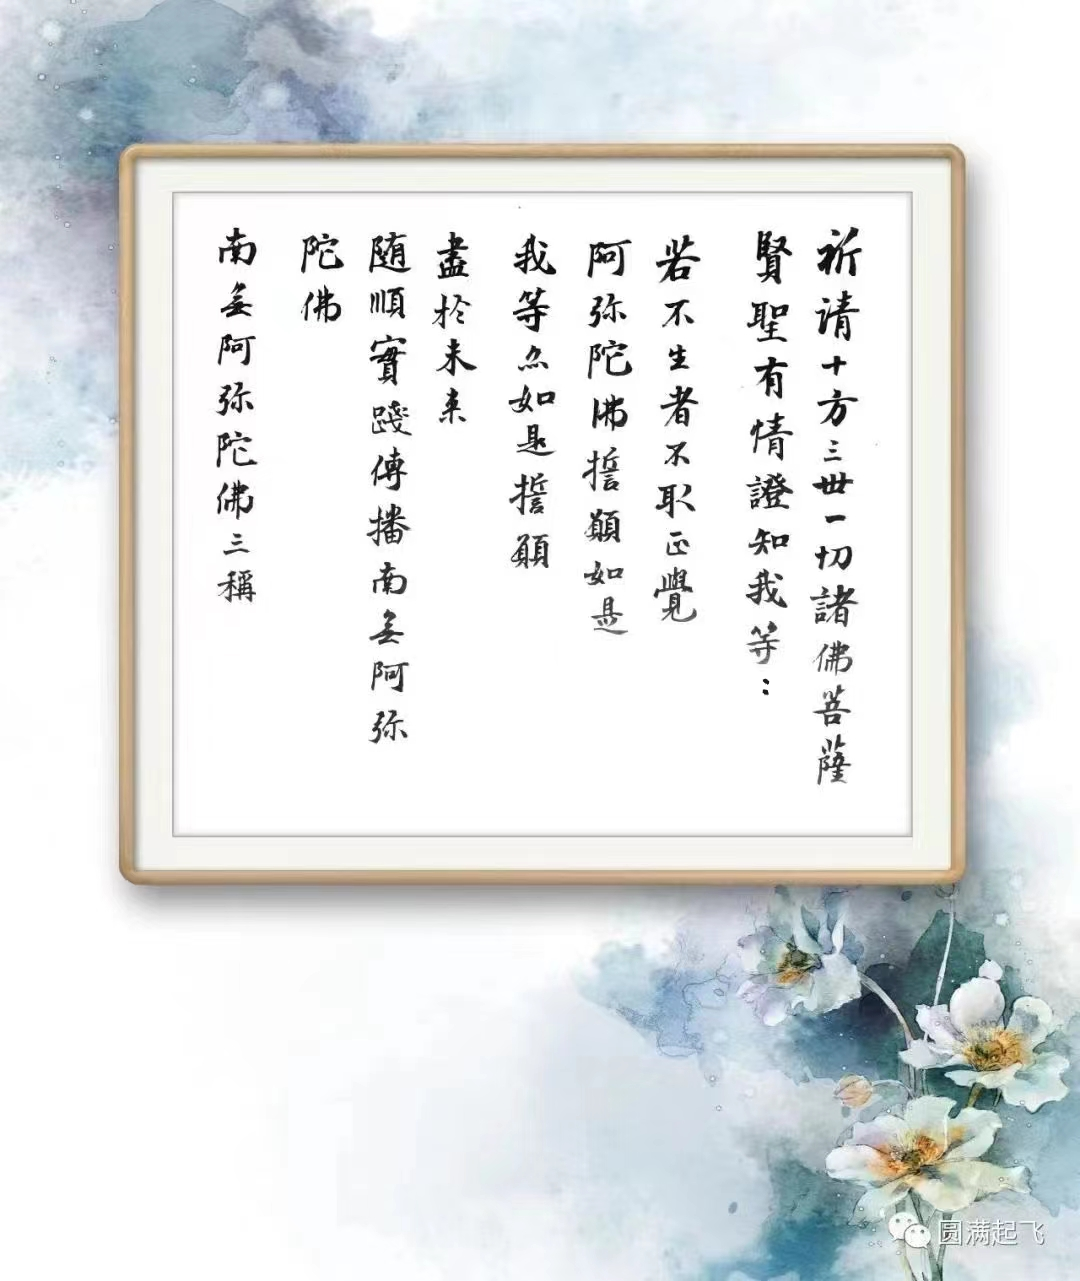 祈请十方三世一切諸佛菩薩
賢聖有情證知我等：
若不生者不取正覺
阿弥陀佛誓願如是
我等亦如是誓願
盡於未来
随順實踐傳播南无阿弥
陀佛
南无阿弥陀佛三稱
圆满起飞